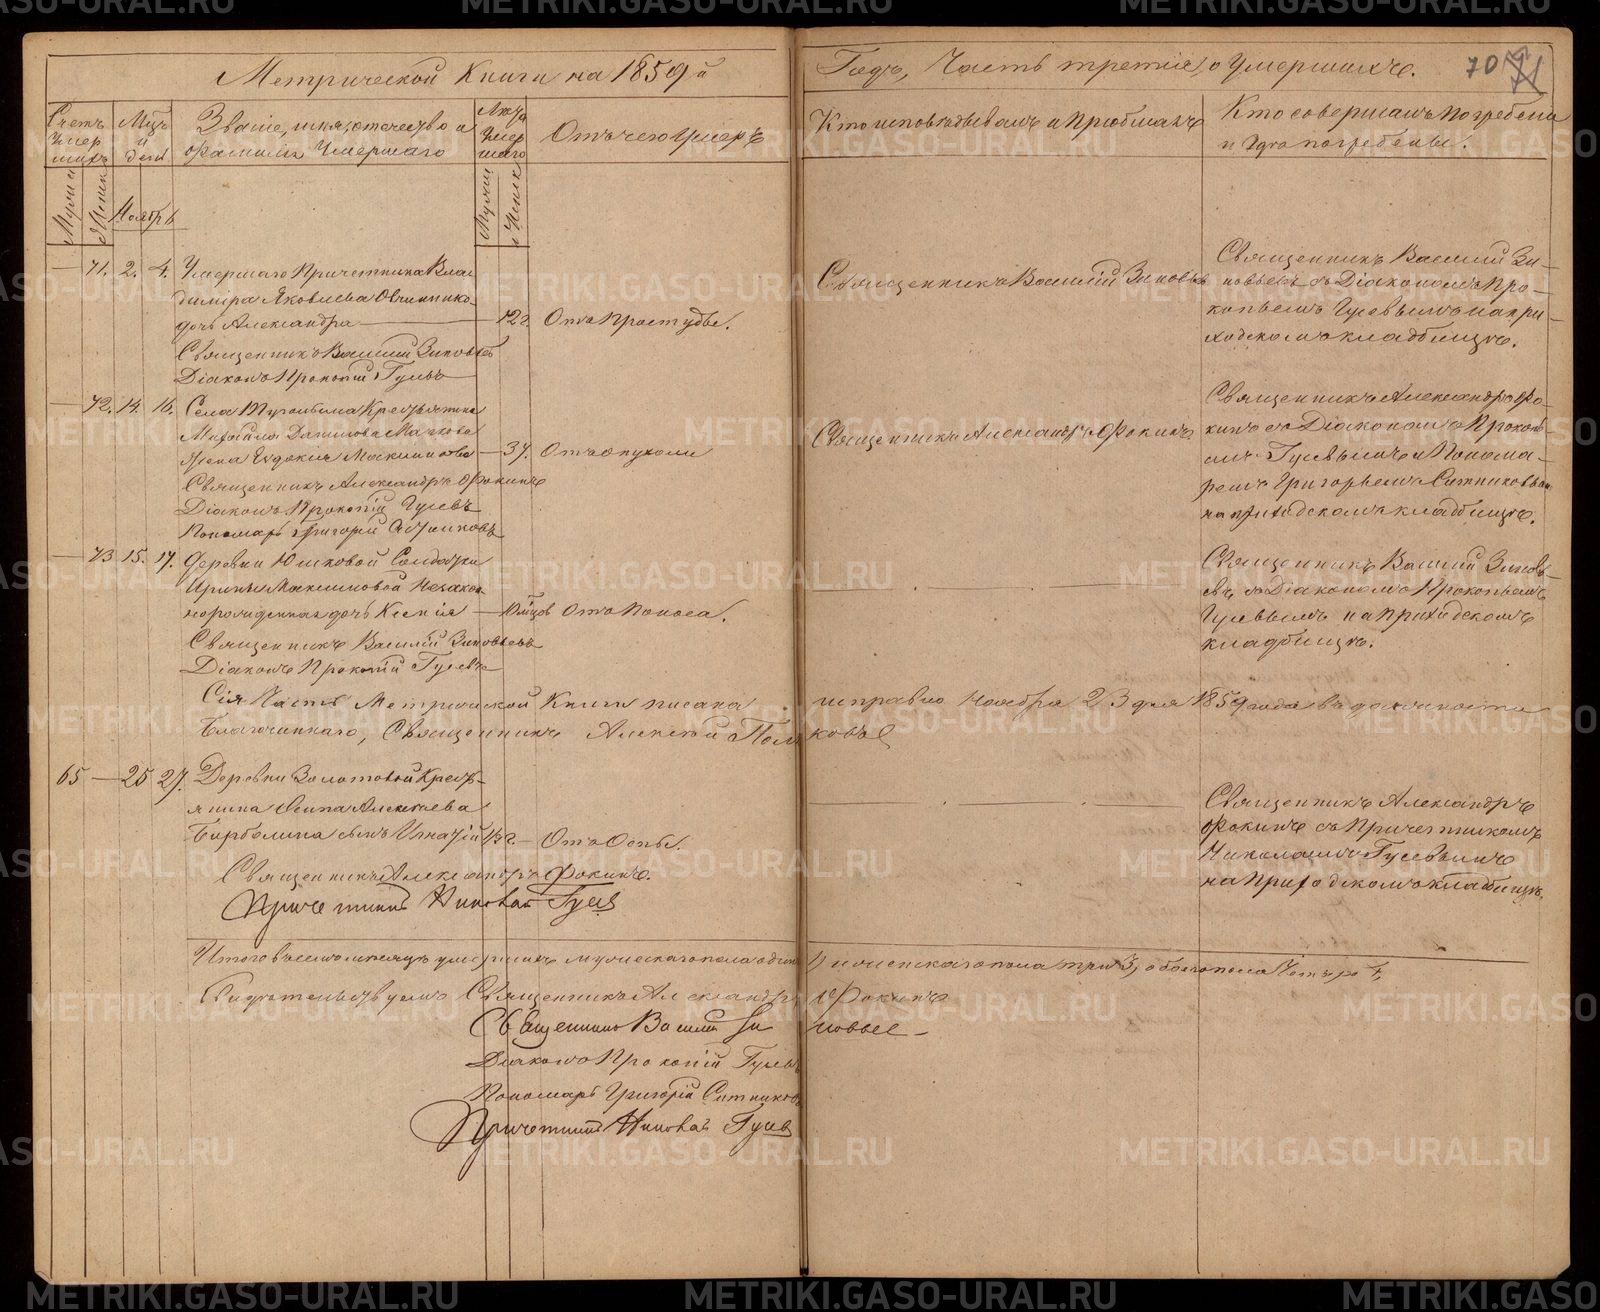 Метрической Книги на 1859й
Годъ, Часть третія, о Умершихъ.
70
71
Счетъ Умершихъ
Мцъ и день
Званіе, имя, отечество и фамилія Умершаго
Лѣта Умершаго
Отъ чего Умеръ
Кто исповѣдывалъ и Пріобщалъ
Кто совершалъ Погребеніе и гдѣ погребены.
Мужск
Женск
Ноябрь
Мужск
Женск
— 71. 2. 4. Умершаго Причетника Вла-
диміра Яковлева Овчиннико-
дочь Александра — 12 г. Отъ Простуды.
Священникъ Василій Зиновьевъ
Діаконъ Прокопій Гусевъ
Священникъ Василій Зиновьевъ
Священникъ Василій Зи-
новьевъ съ Діакономъ Про-
копьемъ Гусевымъ на при-
ходскомъ кладбищѣ.
— 72. 14. 16. Села Крестьянина
Михаила Данилова
жена Евдокія Максимова — 37. Отъ опухоли
Священникъ Александръ Фокинъ
Діаконъ Прокопій Гусевъ
Пономарь Григорій Ситниковъ
Священникъ Александръ Фокинъ
Священникъ Александръ Фо-
кинъ съ Діакономъ Прокопь-
емъ Гусевымъ и Понома-
ремъ Григорьемъ Ситниковымъ
на приходскомъ кладбищѣ.
— 73 15. 17. Деревни Юшковой Солдатки
Ирины Максимовой незакон-
норожденная дочь Ксенія — мцовъ Отъ Поноса.
Священникъ Василій Зиновьевъ
Діаконъ Прокопій Гусевъ
Священникъ Василій Зиновь-
евъ съ Діакономъ Прокопьемъ
Гусевымъ на Приходскомъ
кладбищѣ.
Сія Часть Метрической Книги писана исправно Ноября 23 дня 1859 года въ должности
Благочиннаго, Священникъ Алексій Поляковъ
65 — 25 27. Деревни Золотовой Кресть-
янина Осипа Алексѣева
сынъ Игнатій 1/2 г. — Отъ Оспы.
Священникъ Александръ Фокинъ.
Причетникъ Николай Гусев
Священникъ Александръ
Фокинъ съ Причетникомъ
Николаемъ Гусевымъ
на Приходскомъ кладбищѣ.
Итого въ семъ мѣсяцѣ умершихъ мужескаго пола одинъ 1, женскаго пола три 3, обоего пола четыре 4,
Свидѣтельствуемъ Священникъ Александръ Фокинъ
Священникъ Василій Зиновьев
Діаконъ Прокопій Гусевъ
Пономарь Григорій Ситниковъ
Причетникъ Николай Гусев
METRIKI.GASO-URAL.RU